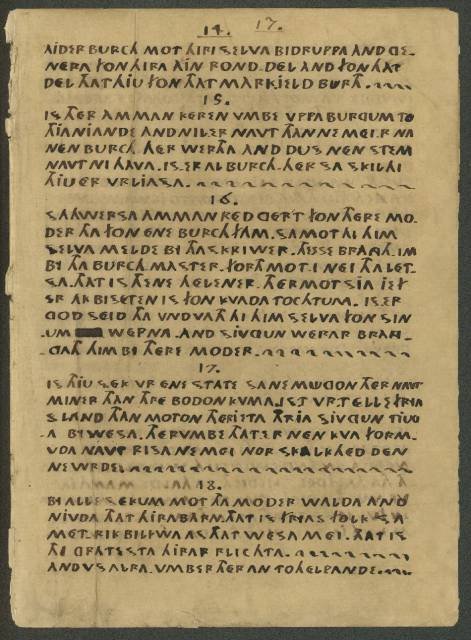 14. 17.
AIDER BURCH MOT HIRI SELVA BIDRUPPA AND DE-
NERA FON HIRA AIN ROND. DEL AND FON THAT
DEL THAT HIU FON THAT MARKJELD BURTH.
15.
IS THER AMMAN KEREN VMBE VPPA BURGUM TO
THIANIANDE AND NIL ER NAVT THAN NE MEI.R NA
NEN BURCH HER WERTHA AND DUS NEN STEM
NAVT NI HAVA. IS. ER AL BURCH HER SA SKIL HI
THIU ER VRLIASA.
16.
SAHWERSA AMMAN RED GERT FON THERE MO.
DER THA FON ENE BURCH FAM. SA MOT HI HIM
SELVA MELDE BI THA SKRIWER. THESSE BRANG. IM
BI THA BURCH MASTER. FORTH MOT. I NEI THA LET.
SA. THAT IS THENE HELENER. THER MOT SIA IEF
ER AK BISETEN IS FON KVADA TOCHTUM. IS. ER
GOD SEID THA VNDVATH HI HIM SELVA FON SIN
UM WEPNA. AND SIUGUN WERAR BRAN-
GATH HIM BI THERE MODER.
17.
IS THIU SEK VR ENE STATE SA NE MÜGON THER NAVT
MINER THAN THRE BODON KUMA. IST VR.T ELLE FRIA
S LAND THAN MOTON THER IETA THRIA SIUGUN TIUG
A BI WESA. THERVMBE THAT.ER NEN KVA FORM.
VDA NAVT RISA NE MEI NOR SKALKHED DEN
NE WRDE.
18.
BI ALLE SEKUM MOT THA MODER WALDA AND
NIUDA THAT HIRA BARN. THAT IS FRIAS FOLK SA
MET.RIK BILIWA AS THAT WESA MEI. THAT IS
THI GRATESTA HIRAR PLICHTA.
AND VS ALRA. VMB ER THER AN TO HELPANDE.